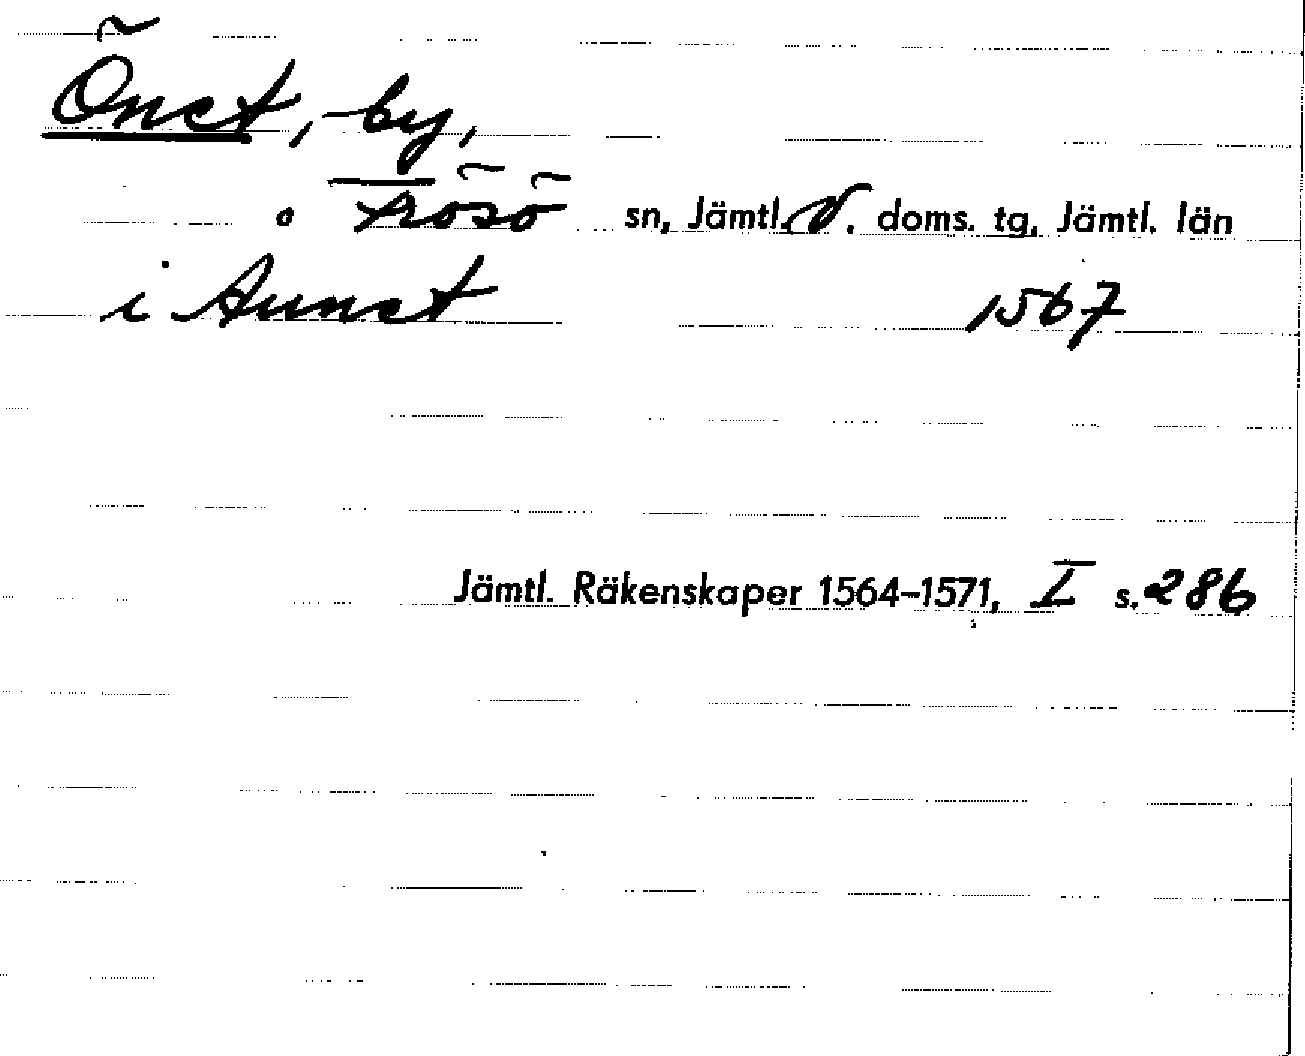 Önst, by,
o Frösö sn, Jämtl. V. doms. tg, Jämtl. län
i Aunst 1567
Jämtl. Räkenskaper 1564–1571, I s. 286